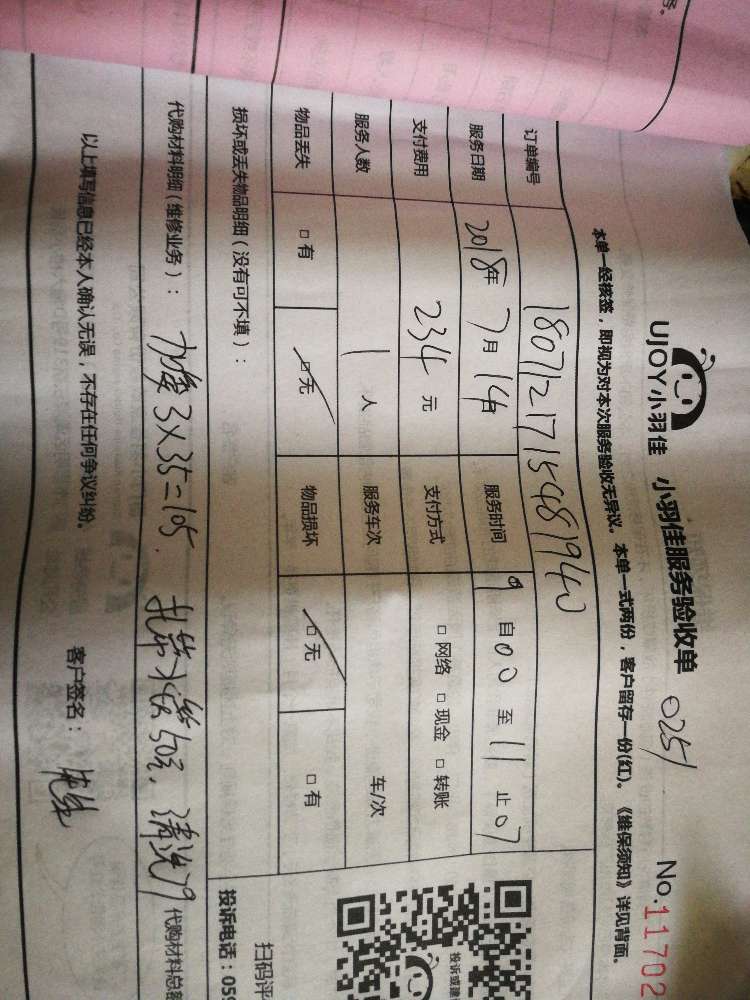 UJOY小羽佳 小羽佳服务验收单 0251 No.11702
本单一经核签，即视为对本次服务验收无异议。本单一式两份，客户留存一份(红)。《维保须知》详见背面。
订单编号 180712171548194
服务日期 2018年7月14日 服务时间 9自00至11止07
支付费用 234元 支付方式 □网络 □现金 □转账
服务人数 1人 服务车次 车/次
物品丢失 □有 □无 物品损坏 □无 □有
损坏或丢失物品明细（没有可不填）：
代购材料明细（维修业务）： 3×35=105. 清洗79 代购材料总额
以上填写信息已经本人确认无误，不存在任何争议纠纷。 客户签名：
扫码评
投诉电话：059
投诉或建